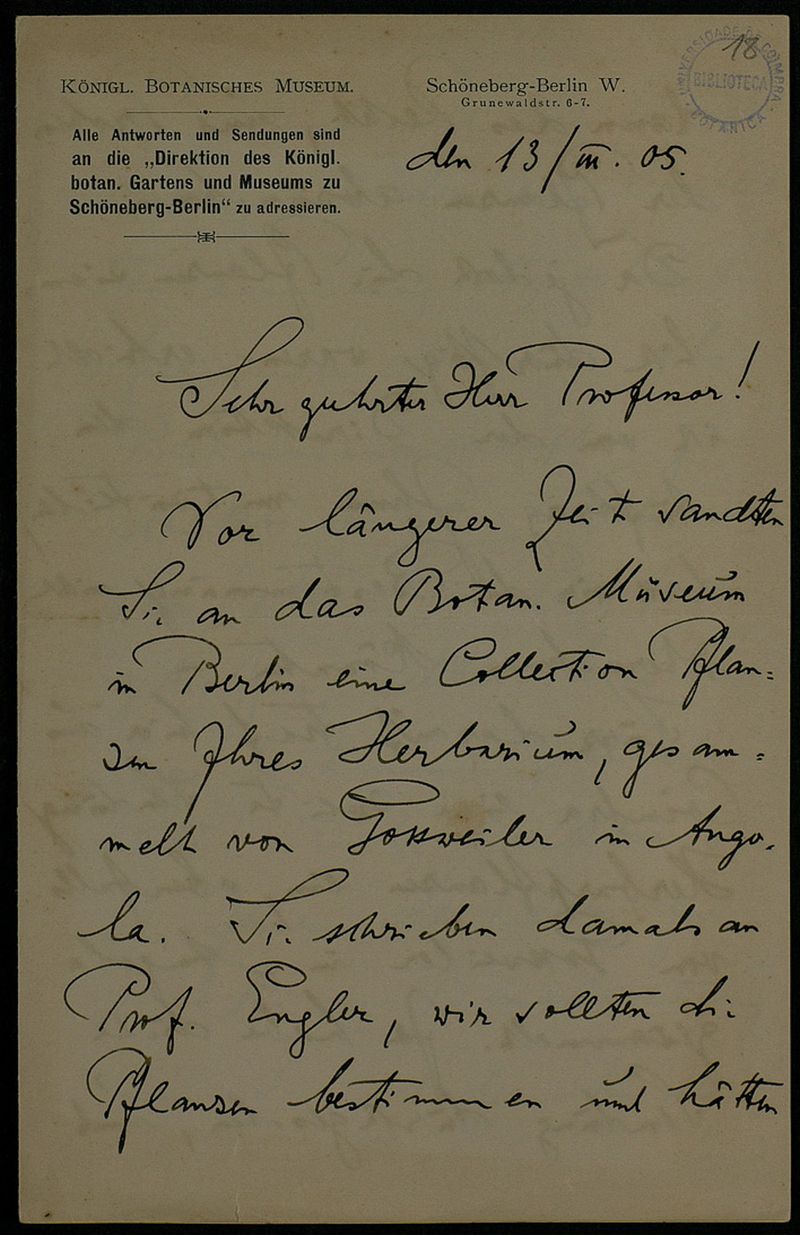 18
UNIVERSIDADE DE COIMBRA
BIBLIOTECA
BOTANICA
KÖNIGL. BOTANISCHES MUSEUM.
Schöneberg-Berlin W.
Grunewaldstr. 6-7.
Alle Antworten und Sendungen sind
an die „Direktion des Königl.
botan. Gartens und Museums zu
Schöneberg-Berlin“ zu adressieren.
den 13/III. 05.
Sehr geehrter Herr Professor!
Vor längerer Zeit sandten
Sie an das Botan. Museum
in Berlin eine Collection Pflan=
zen Ihres Herbarium, gesam=
melt von Gossweiler in Ango-
la. Sie schrieben damals an
Prof. Engler, wir sollten die
Pflanzen bestimmen und hätten